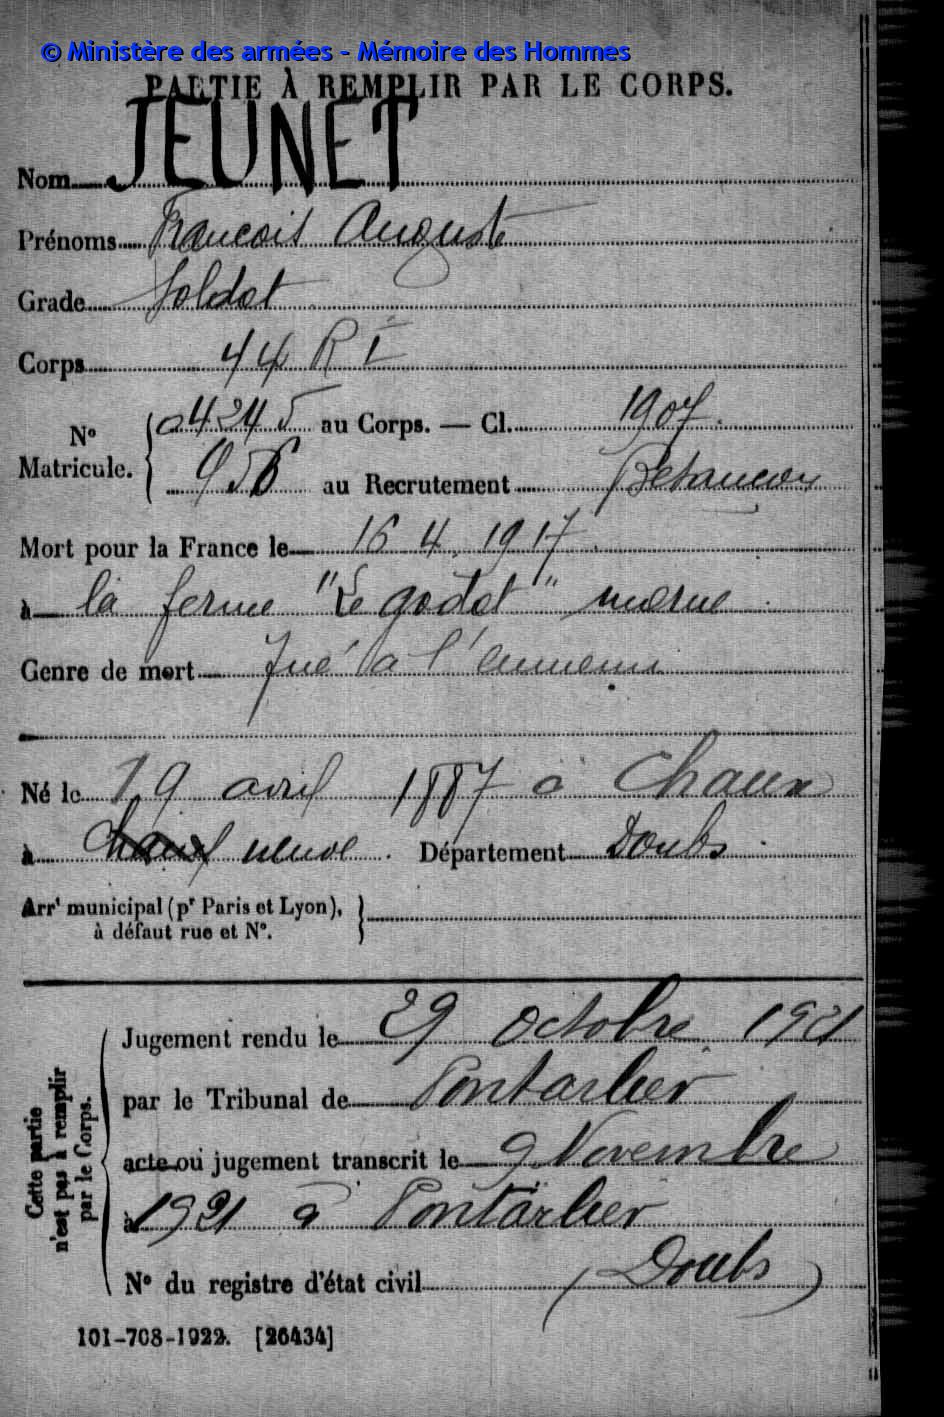 © Ministère des armées - Mémoire des Hommes
PARTIE À REMPLIR PAR LE CORPS.
Nom JEUNET
Prénoms François Auguste
Grade Soldat
Corps 44 R I
N° Matricule. { 04245 au Corps. — Cl. 1907
956 au Recrutement Besançon
Mort pour la France le 16 4. 1917
à la ferme "Le godat" marne
Genre de mort Tué à l'ennemi
Né le 19 avril 1887 à Chaux
à neuve. Département Doubs
Arrt municipal (pr Paris et Lyon), }
à défaut rue et N°.
Cette partie
n'est pas à remplir
par le Corps.
Jugement rendu le 29 Octobre 1921
par le Tribunal de Pontarlier
acte ou jugement transcrit le 9 Novembre
à 1921 à Pontarlier
N° du registre d'état civil (Doubs)
101-708-1922. [26434]